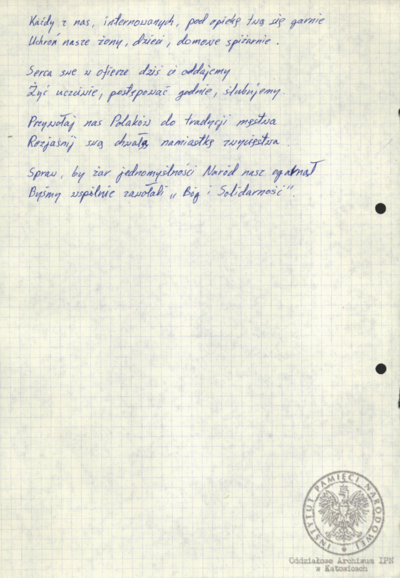 Każdy z nas, internowanych, pod opiekę twą się garnie
Uchroń nasze żony, dzieci, domowe spiżarnie.
Serca swe w ofierze dziś ci oddajemy
Żyć uczciwie, postępować godnie, ślubujemy.
Przywołaj nas Polaków do tradycji męstwa
Rozjaśnij swą chwałą namiastkę zwycięstwa.
Spraw, by żar jednomyślności Naród nasz ogarnął
Byśmy wspólnie zawołali „Bóg i Solidarność"
INSTYTUT PAMIĘCI NARODOWEJ
Oddziałowe Archiwum IPN
w Katowicach